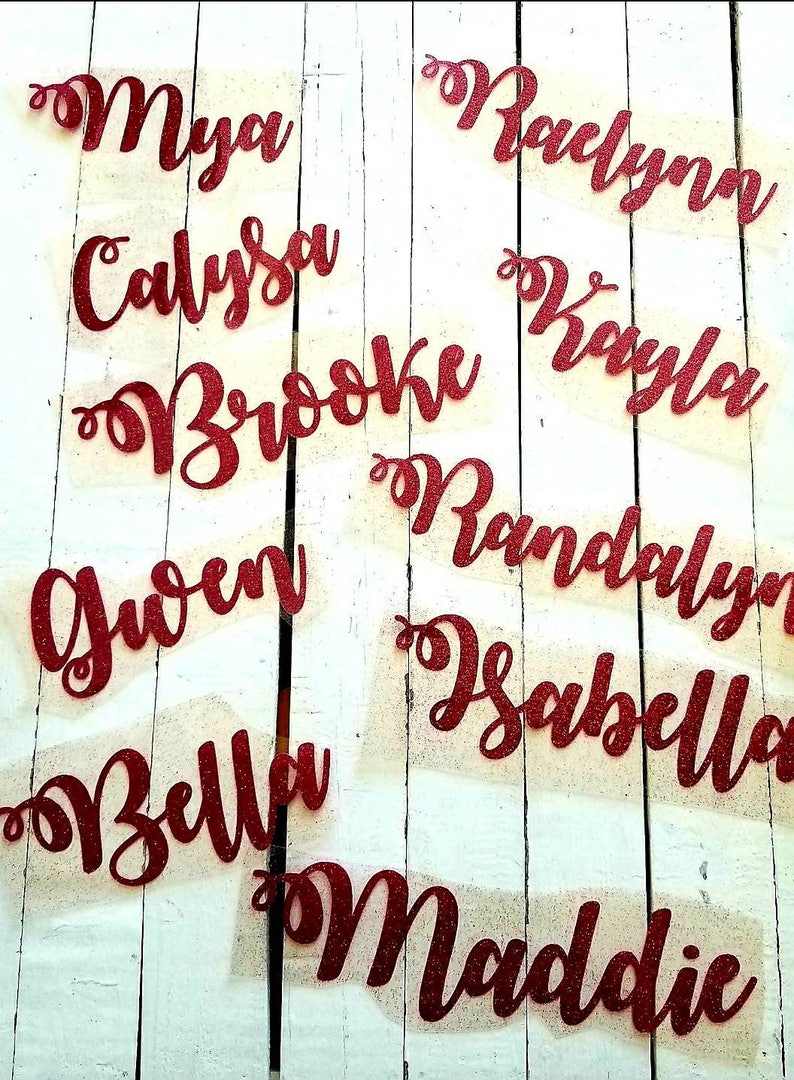 Mya
Calysa
Brooke
Gwen
Bella
Raelynn
Kayla
Randalyn
Isabella
Maddie